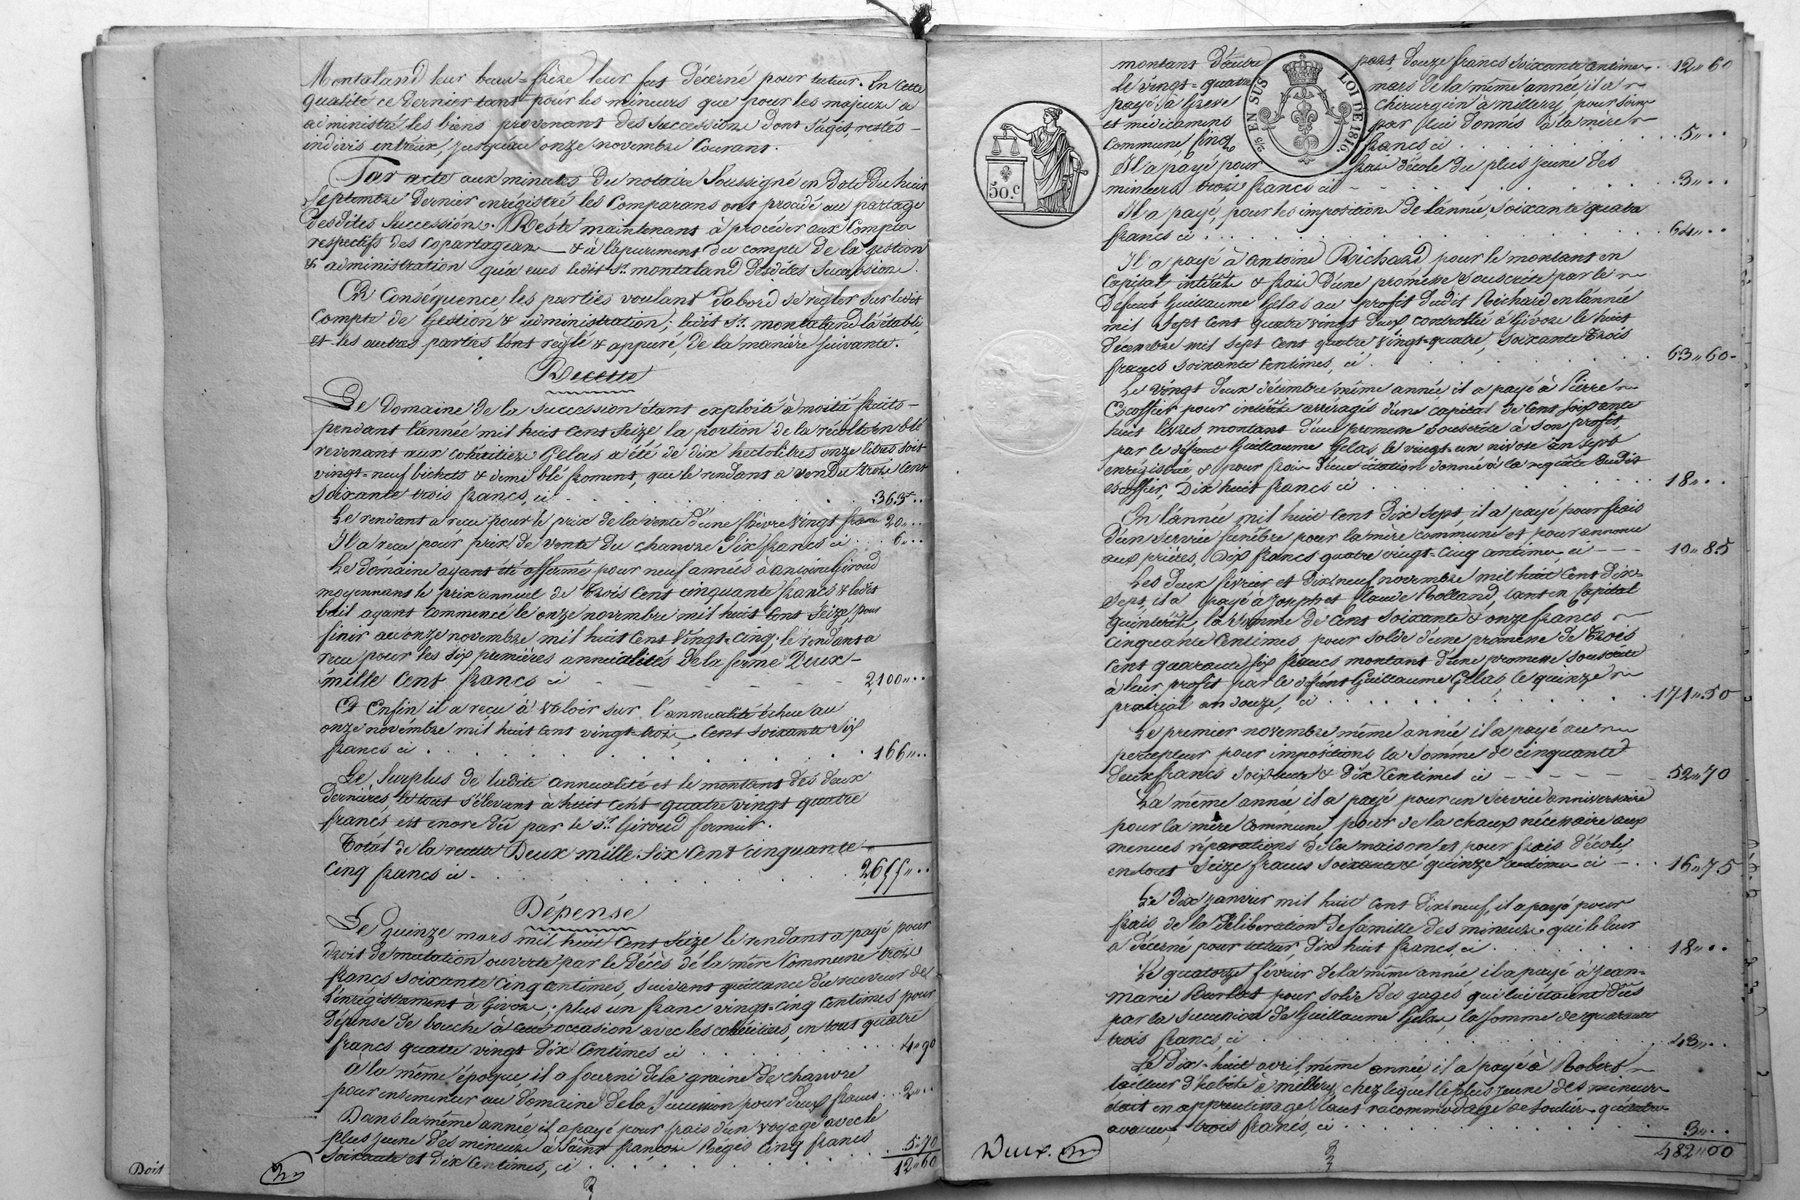 Montaland leur beau-frère leur fut décerné pour tuteur. En cette
qualité ce dernier tant pour les mineurs que pour les majeurs a
administré les biens provenant des successions dont s'agit, restés
indivis entreux, jusquau onze novembre Courant.
Par acte aux minutes du notaire Soussigné en Date du huit
Septembre dernier enrégistré les Comparans ont procédé au partage
Desdites Successions. Reste maintenant à procéder aux Compte
respectifs des Copartageans & à l'apurement du compte de la gestion
& administration qu'a eues ledit Sr. montaland desdites Successions.
En Conséquence les parties voulant d'abord se régler sur ledit
Compte de Gestion & administration; ledit Sr. montaland l'a établi,
et les autres parties l'ont réglé & appuré, de la manière Suivante.
Recette
Le Domaine de la succession étant exploité à moitié fruits
pendant l'année mil huit Cent Seize la portion de la récolte en blé
revenant aux cohéritiers Gelas a été de dix hectolitres onze litres soit
vingt-neuf bichets & demi blé froment, que le rendant a vendu trois Cent
soixante trois francs, ci . . . 363 " ..
Le rendant a reçu pour le prix de la vente d'une chèvre vingt francs 20 " ..
Il a reçu pour prix de vente du chanvre Six francs ci . . . 6 " ..
Le domaine ayant été affermé pour neuf années à antoine Giroud
moyennant le prix annuel de Trois Cent cinquante francs & ledit
bail ayant Commencé le onze novembre mil huit Cent Seize, pour
finir au onze novembre mil huit Cent Vingt-cinq; le rendant a
reçu pour les six premières annuités de la ferme Deux-
mille Cent francs ci - - - 2,100 " ..
Et Enfin il a reçu à valoir sur l'annualité échue au
onze novembre mil huit Cent vingt-trois, Cent soixante Six
francs ci . . . 166 " ..
Le Surplus de ladite annualité et le montant des deux
dernières, le tout s'élevant à huit Cent quatre vingt quatre
francs est encore dû par le Sr. Giroud fermier.
Total de la recette Deux mille Six Cent Cinquante
Cinq francs ci . . . 2,655 " ..
Dépense
Le Quinze mars mil huit Cent Seize le rendant a payé pour
droit de mutation ouverte par le Décès de la mère Commune trois
francs soixante Cinq Centimes, suivant quittance du receveur de
l'enrégistrement à Givors; plus un franc vingt-Cinq Centimes pour
dépense de bouche à cette occasion avec les cohéritiers, en tout quatre
francs quatre vingt Dix Centimes ci . . . 4 " 90
à la même époque il a fourni de la graine de chanvre
pour ensemencer au domaine de la Succession pour deux francs . . . 2 " ..
Dans la même année, il a payé pour frais d'un voyage avec le
plus jeune des mineurs à Saint françois Régis Cinq francs
soixante et Dix Centimes, ci . . . 5 " 70
12 " 60
Doit
montant d'autre part Douze francs Soixante Centimes . . 12 " 60
Le vingt-quatre mars de la même année, il a
payé à Greve chirurgien à millery pour soins
et médicamens par lui donnés à la mère
Commune Cinq francs ci . . . 5 " ..
Il a payé pour frais d'école du plus jeune des
mineurs trois francs ci . . . 3 " ..
EN SUS
LOI DE 1816.
50.c
Il a payé, pour les imposition de l'année soixante quatre
francs ci . . . 64 " ..
Il a payé à antoine Richard pour le montant en
Capital, intérêts & frais d'une promesse souscrite par le
Défunt Guillaume Gelas au profit dudit Richard en l'année
mil Sept Cent quatre vingt Deux contrôllée à Givors le huit
décembre mil sept Cent quatre Vingt-quatre, Soixante Trois
francs soixante Centimes, ci . . . 63 " 60
Le vingt deux décembre même année il a payé à Pierre
Escoffier pour intérêts arréragés d'une capital de Cent soixante
huit livres montant d'une promesse souscrite à son profit,
par le défunt Guillaume Gelas le vingt-un nivôse an sept
enregistrée & pour frais d'une citation donnée à la requête dudit
escoffier, Dix huit francs ci . . . 18 " ..
En l'année mil huit Cent Dix Sept, il a payé pour frais
d'un service funèbre pour la mère commune et pour annonce
aux prières, Dix francs quatre vingt-Cinq centimes ci - - - 10 " 85
Les deux février et dix neuf novembre mil huit Cent Dix-
Sept, il a payé à Joseph et Claude Rolland, tant en Capital
qu'intérêt, la Somme de Cent soixante & onze francs
Cinquante Centimes pour solde d'une promesse de Trois
Cent quarante six francs montant d'une promesse souscrite
à leur profit par le défunt Guillaume Gelas, le quinze
prairial an douze, ci . . . 171 " 50
Le premier novembre même année il a payé au
percepteur, pour impositions la Somme de cinquante
deux francs soixante & dix Centimes ci - - - 52 " 70
La même année il a payé pour un Service anniversaire
pour la mère Commune, pour de la chaux nécessaire aux
menues réparations de la maison et pour frais d'école,
en tout Seize francs soixante & quinze centimes ci - . . 16 " 75
Le Dix Janvier mil huit Cent Dix neuf, il a payé pour
frais de la Délibération de famille des mineurs qui le leur
a décerné pour tuteur Dix huit francs, ci . . . 18 " ..
Le quatorze février de la même année il a payé à Jean-
marie Burlat pour solde des gages qui lui étaient dûs
par la Succession de Guillaume Gelas, la Somme de quarante
trois francs, ci . . . 43 " ..
Le Dix-huit avril même année il a payé à Robert
tailleur d'habits à millery chez lequel le plus jeune des mineurs
était en apprentissage pour racommodage de soulier
avance, trois francs, ci . . . 3 " ..
Deux.
482 " 00